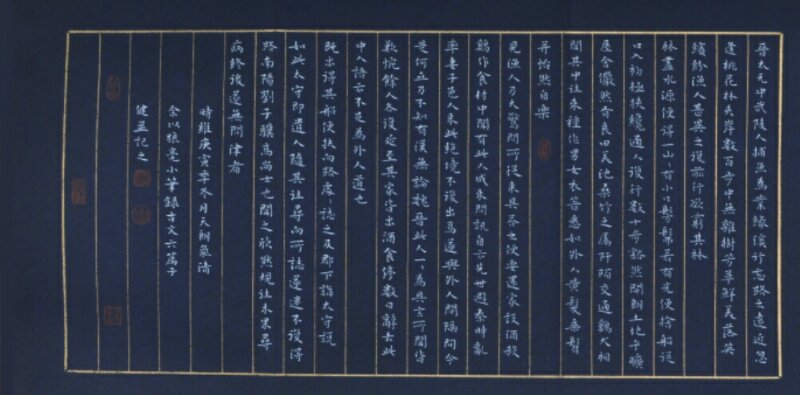 晉太元中武陵人捕魚為業緣溪行忘路之遠近忽
逢桃花林夾岸數百步中無雜樹芳草鮮美落英
繽紛漁人甚異之復前行欲窮其林
林盡水源便得一山山有小口髣髴若有光便捨船從
口入初極狹纔通人復行數十步豁然開朗土地平曠
屋舍儼然有良田美池桑竹之屬阡陌交通雞犬相
聞其中往來種作男女衣著悉如外人黃髮垂髫
并怡然自樂
見漁人乃大驚問所從來具答之便要還家設酒殺
鷄作食村中聞有此人咸來問訊自云先世避秦時亂
率妻子邑人來此絕境不復出焉遂與外人間隔問今
是何世乃不知有漢無論魏晉此人一一為具言所聞皆
歎惋餘人各復延至其家皆出酒食停數日辭去此
中人語云不足為外人道也
既出得其船便扶向路處處誌之及郡下詣太守說
如此太守即遣人隨其往尋向所誌遂迷不復得
路南陽劉子驥高尚士也聞之欣然規往未果尋
病終後遂無問津者
時維庚寅年冬月天朗氣清
余以狼毫小筆錄古文六篇于
健 記之